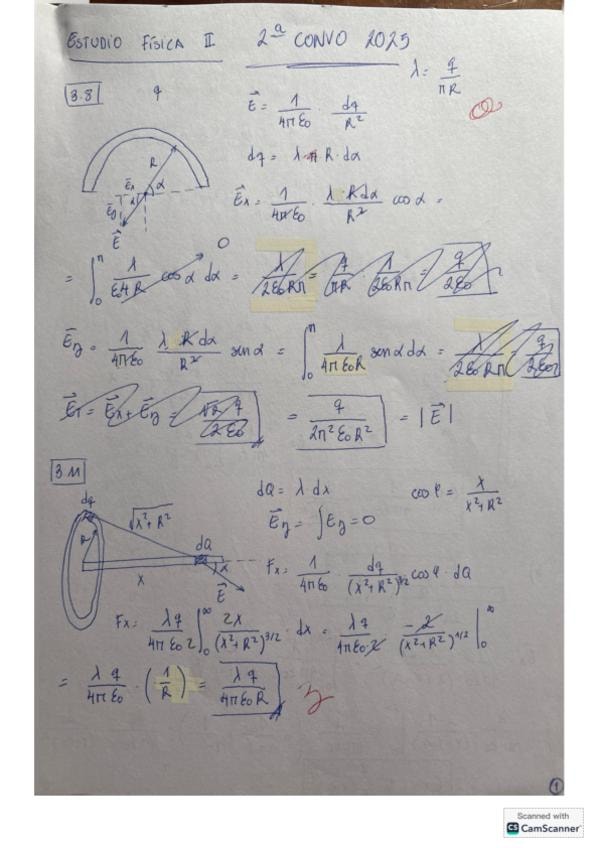 ESTUDIO FÍSICA II 2ª CONVO 2025
λ = q / πR
3.8 q
E⃗ = 1/4πε0 · dq/R²
dq = λ R · dα
E⃗x = 1/4πε0 · λ R dα/R² cos α =
R
E⃗x α
E⃗y
E⃗
0
= ∫0^π λ/ε04R cos α dα = λ/2ε0Rπ = q/πR · 1/2ε0Rπ = q/2ε0
E⃗y = 1/4πε0 λ R dα/R² sen α = ∫0^π λ/4πε0R sen α dα = λ/2ε0Rπ = q/2ε0π
E⃗T = E⃗x + E⃗y = √2 q/2ε0 = q/2π²ε0R² = |E⃗|
3.11
dQ = λ dx cos φ = x/x²+R²
dq
√x²+R²
E⃗y = ∫Ey = 0
R
dQ
x
α
E⃗
Fx = 1/4πε0 · dq/(x²+R²)^3/2 cos φ · dQ
Fx = λq/4πε0 2 ∫0^∞ 2x/(x²+R²)^3/2 · dx = λq/4πε0·2 -2/(x²+R²)^1/2 |0^∞
= λq/4πε0 · (1/R) = λq/4πε0R
1
Scanned with
CS CamScanner